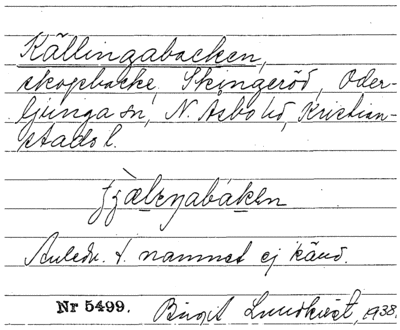 Källingabacken,
skogsbacke, Skingeröd, Oder-
ljunga sn, N. Åsbo hd, Kristian-
stads l.
Anledn. t. namnet ej känd.
Nr 5499. Birgit Lundkvist, 1938.